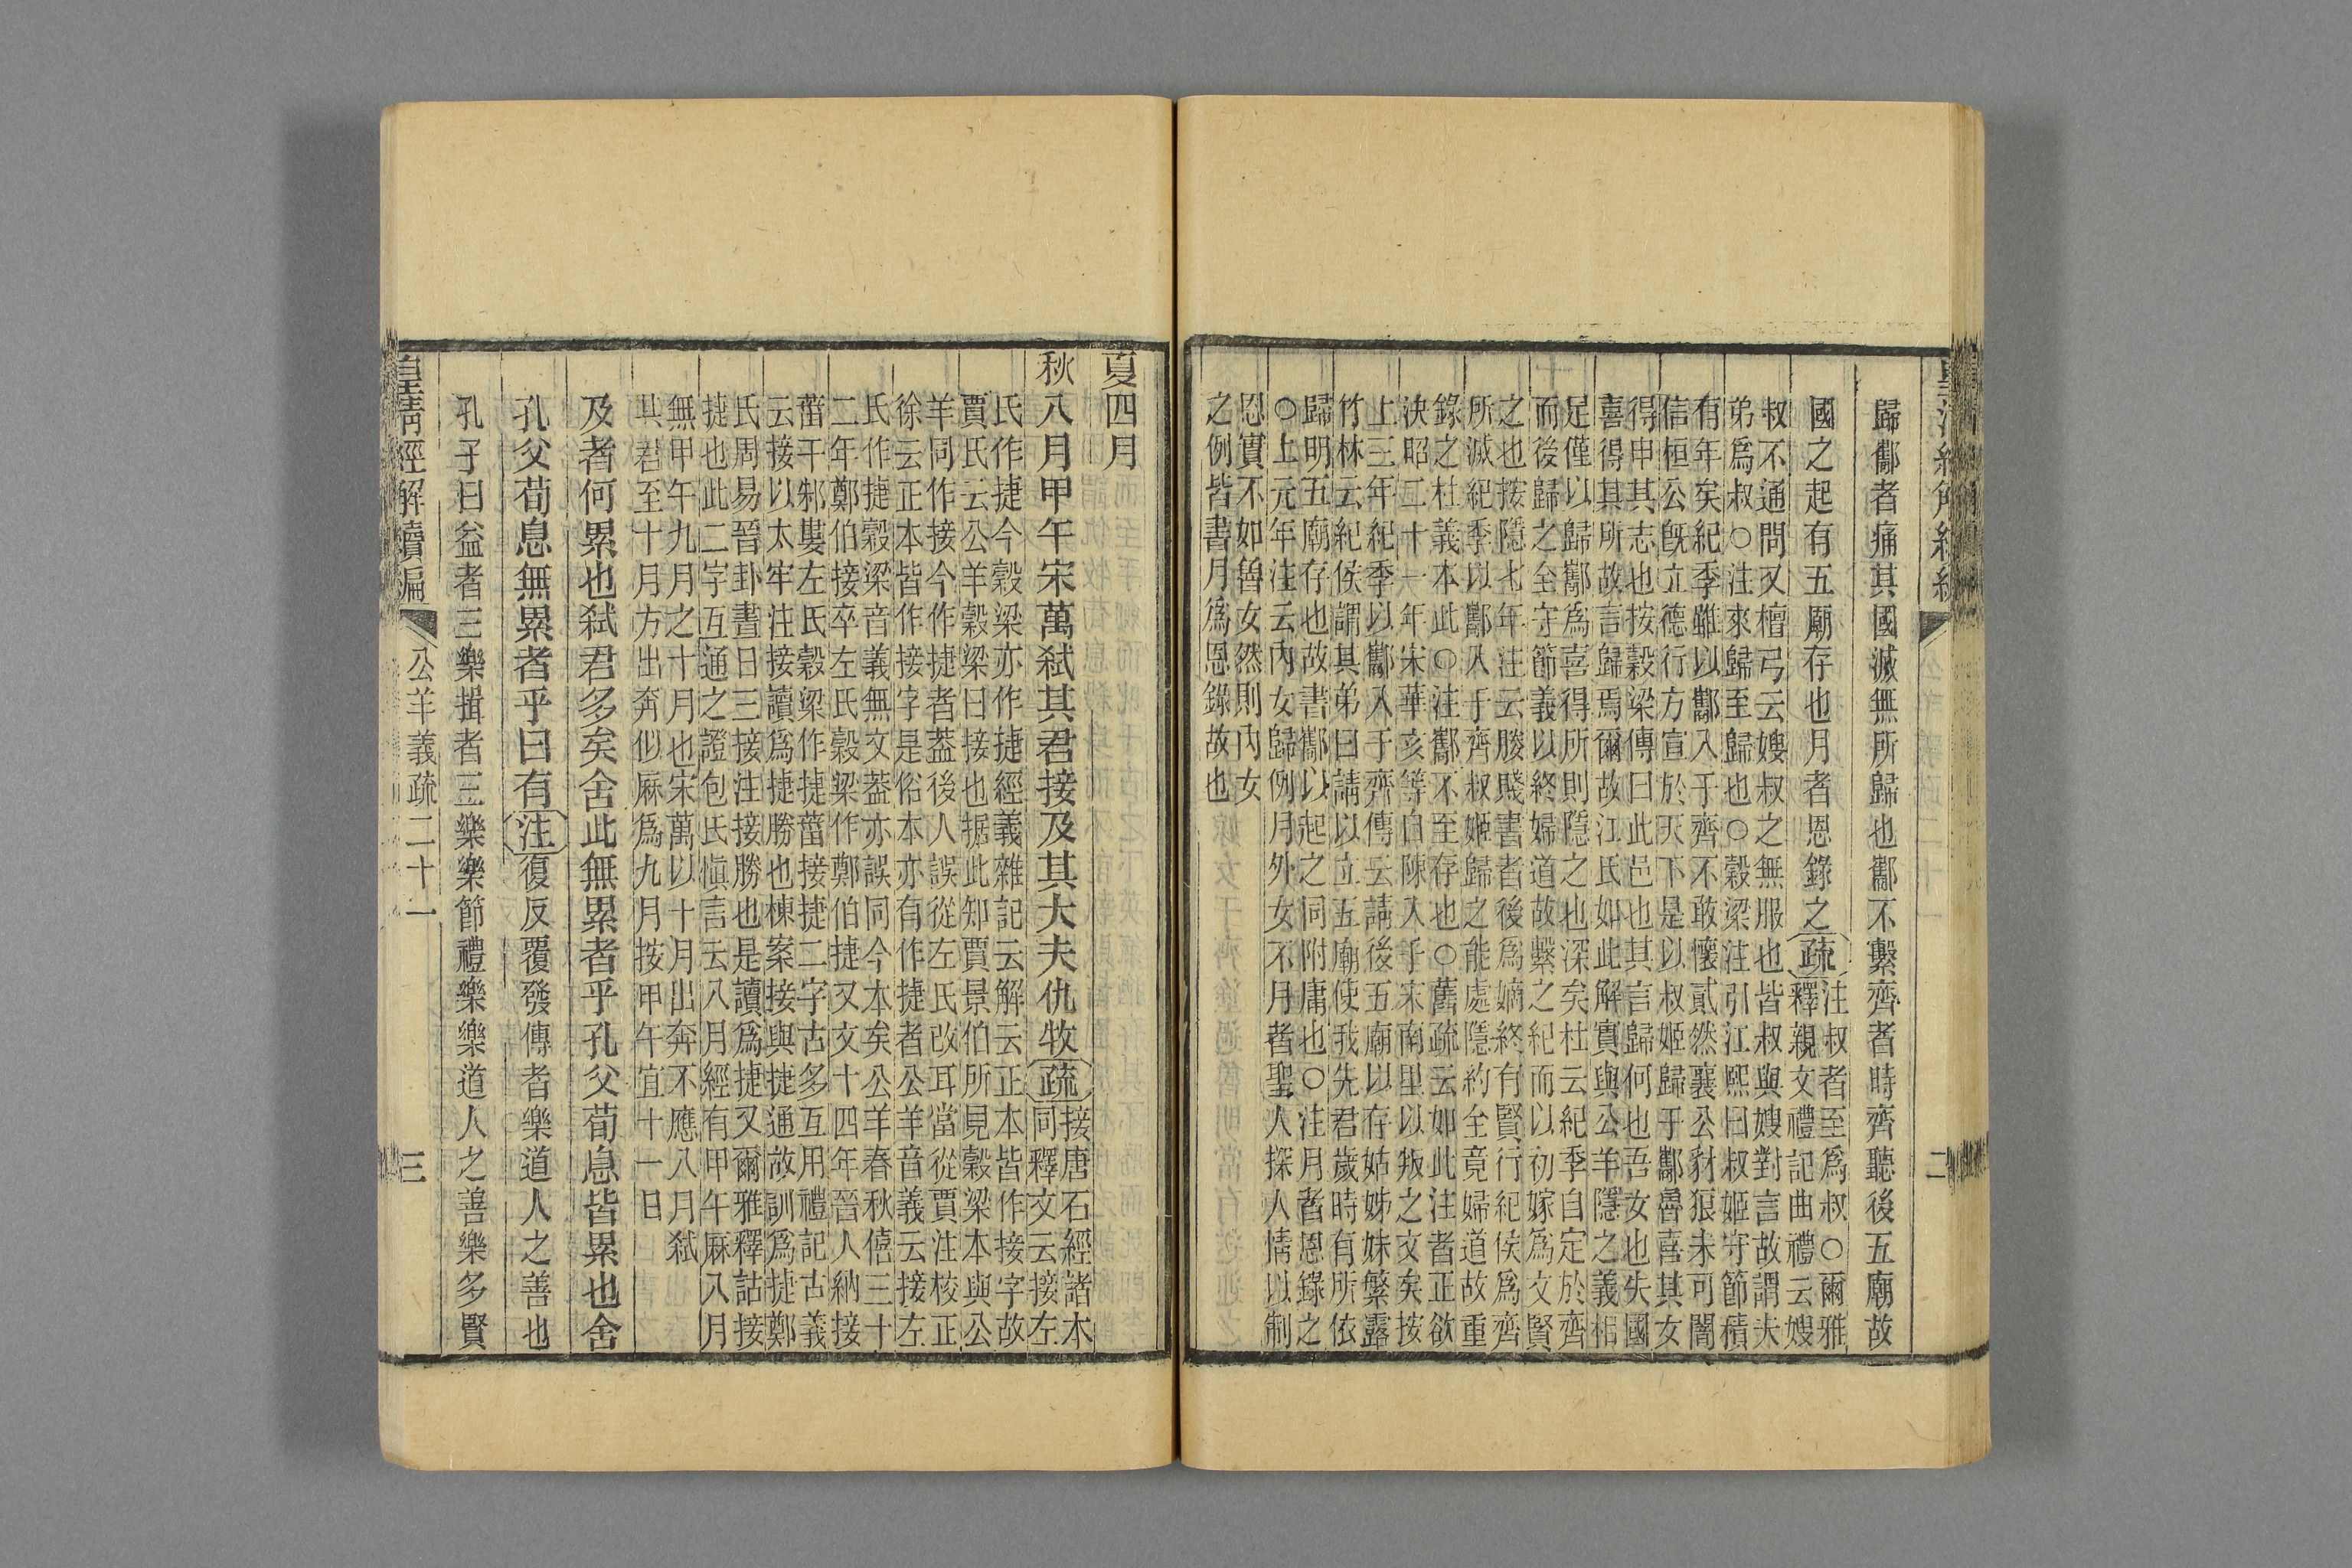 歸酅者痛其國滅無所歸也酅不繫齊者時齊聽後五廟故
國之起有五廟存也月者恩錄之疏注叔者至爲叔○爾雅
釋親文禮記曲禮云嫂
叔不通問又檀弓云嫂叔之無服也皆叔與嫂對言故謂夫
弟爲叔○注來歸至歸也○穀梁注引江熙曰叔姬守節積
有年矣紀季雖以酅入于齊不敢懷貳然襄公豺狼未可闇
信桓公旣立德行方宣於天下是以叔姬歸于酅魯喜其女
得申其志也按穀梁傳曰此邑也其言歸何也吾女也失國
喜得其所故言歸焉爾故江氏如此解實與公羊隱之義相
足僅以歸酅爲喜得所則隱之也深矣杜云紀季自定於齊
而後歸之全守節義以終婦道故繫之紀而以初嫁爲文賢
之也按隱七年注云媵賤書者後爲嫡終有賢行紀侯爲齊
所滅紀季以酅入于齊叔姬歸之能處隱約全竟婦道故重
錄之杜義本此○注酅不至存也○舊疏云如此注者正欲
決昭二十一年宋華亥等自陳入于宋南里以叛之文矣按
上三年紀季以酅入于齊傳云請後五廟以存姑姊妹繁露
竹林云紀侯謂其弟曰請以立五廟使我先君歲時有所依
歸明五廟存也故書酅以起之同附庸也○注月者恩錄之
○上元年注云內女歸例月外女不月者聖人探人情以制
恩實不如魯女然則內女
之例皆書月爲恩錄故也
二
夏四月
秋八月甲午宋萬弒其君接及其大夫仇牧疏接唐石經諸本
同釋文云接左
氏作捷今穀梁亦作捷經義雜記云解云正本皆作接字故
賈氏云公羊穀梁曰接也据此知賈景伯所見穀梁本與公
羊同作接今作捷者葢後人誤從左氏改耳當從賈注校正
徐云正本皆作接字是俗本亦有作捷者公羊音義云接左
氏作捷穀梁音義無文葢亦誤同今本矣公羊春秋僖三十
二年鄭伯接卒左氏穀梁作鄭伯捷又文十四年晉人納接
菑于邾婁左氏穀梁作捷菑接捷二字古多互用禮記古義
云接以太牢注接讀爲捷勝也棟案接與捷通故訓爲捷鄭
氏周易晉卦晝日三接注接勝也是讀爲捷又爾雅釋詁接
捷也此二字互通之證包氏愼言云八月經有甲午麻八月
無甲午九月之十月也宋萬以十月出奔不應八月弒
其君至十月方出奔似麻爲九月按甲午宜十一日
及者何累也弒君多矣舍此無累者乎孔父荀息皆累也舍
孔父荀息無累者乎曰有注復反覆發傳者樂道人之善也
孔子曰益者三樂損者三樂樂節禮樂樂道人之善樂多賢
皇淸經解續編 公羊義疏二十一 三